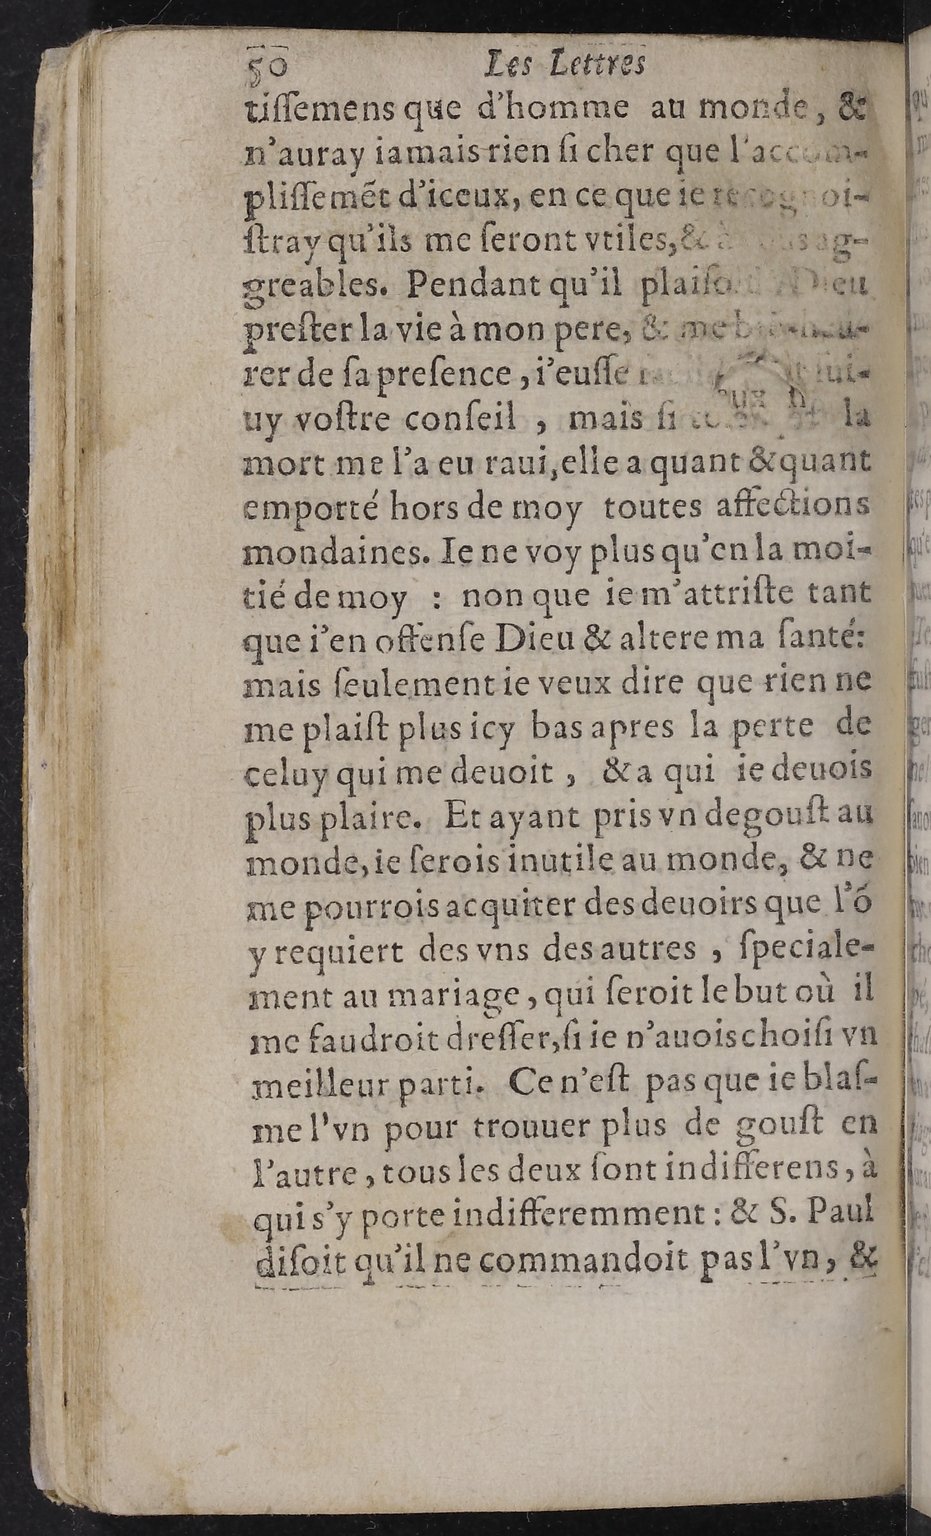 50 Les Lettres
tiſſemens que d'homme au monde, &
n'auray iamais rien ſi cher que l'accom-
pliſſemẽt d'iceux, en ce que ie recognoi-
ſtray qu'ils me ſeront vtiles, & à vous ag-
greables. Pendant qu'il plaiſoit à Dieu
preſter la vie à mon pere, & me
rer de ſa preſence, i'euſſe ſui-
uy voſtre conſeil, mais ſi la
mort me l'a eu raui, elle a quant & quant
emporté hors de moy toutes affections
mondaines. Ie ne voy plus qu'en la moi-
tié de moy : non que ie m'attriſte tant
que i'en offenſe Dieu & altere ma ſanté:
mais ſeulement ie veux dire que rien ne
me plaiſt plus icy bas apres la perte de
celuy qui me deuoit, & a qui ie deuois
plus plaire. Et ayant pris vn degouſt au
monde, ie ſerois inutile au monde, & ne
me pourrois acquiter des deuoirs que l'õ
y requiert des vns des autres, ſpeciale-
ment au mariage, qui ſeroit le but où il
me faudroit dreſſer, ſi ie n'auois choiſi vn
meilleur parti. Ce n'eſt pas que ie blaſ-
me l'vn pour trouuer plus de gouſt en
l'autre, tous les deux ſont indifferens, à
qui s'y porte indifferemment : & S. Paul
diſoit qu'il ne commandoit pas l'vn, &